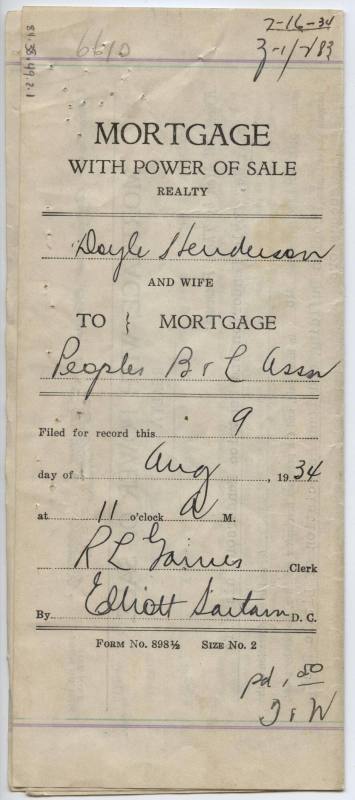 7-16-34
84.35.49.2.1
6610
MORTGAGE
WITH POWER OF SALE
REALTY
Doyle Henderson
AND WIFE
TO } MORTGAGE
Peoples B & L Assn
Filed for record this 9
day of Aug, 1934
at 11 o'clock A M.
R L Gaines Clerk
By Elliott Sartain D. C.
FORM No. 898½ SIZE No. 2
pd .50